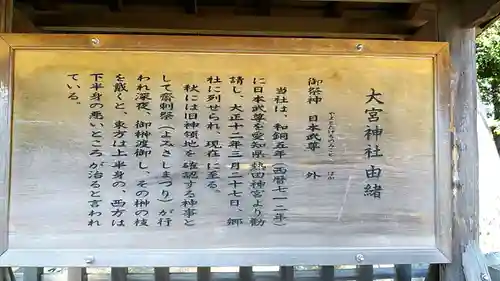 大宮神社由緒
御祭神 日本武尊 外
やまとたけるのみこと ほか
当社は、和銅五年(西暦七一二年)
に日本武尊を愛知県熱田神宮より勧
請し、大正十二年三月二十七日、郷
社に列せられ、現在に至る。
秋には旧神領地を確認する神事と
して齋刺祭(よみさしまつり)が行
われ深夜、御榊渡御し、その榊の枝
を戴くと、東方は上半身の、西方は
下半身の悪いところが治ると言われ
ている。